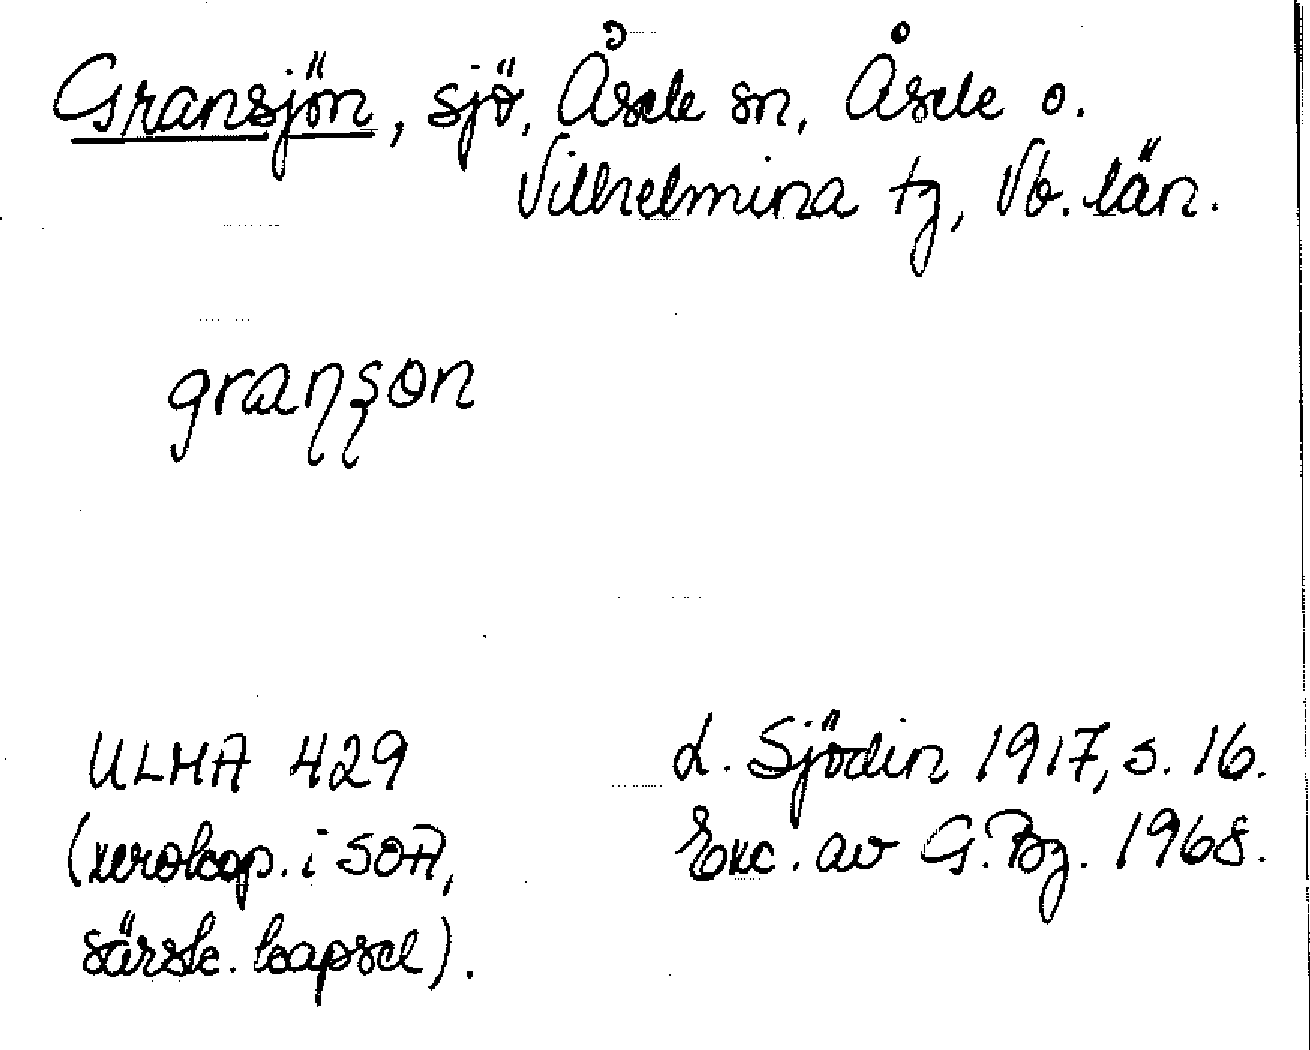 Gransjön, sjö, Åsele sn, Åsele o.
Vilhelmina tg, Vb. län.
graꞃʂɵn
ULMA 429
(xerokop. i SOA,
särsk. kapsel).
L. Sjödin 1917, s. 16.
Exc. av G. Bg. 1968.